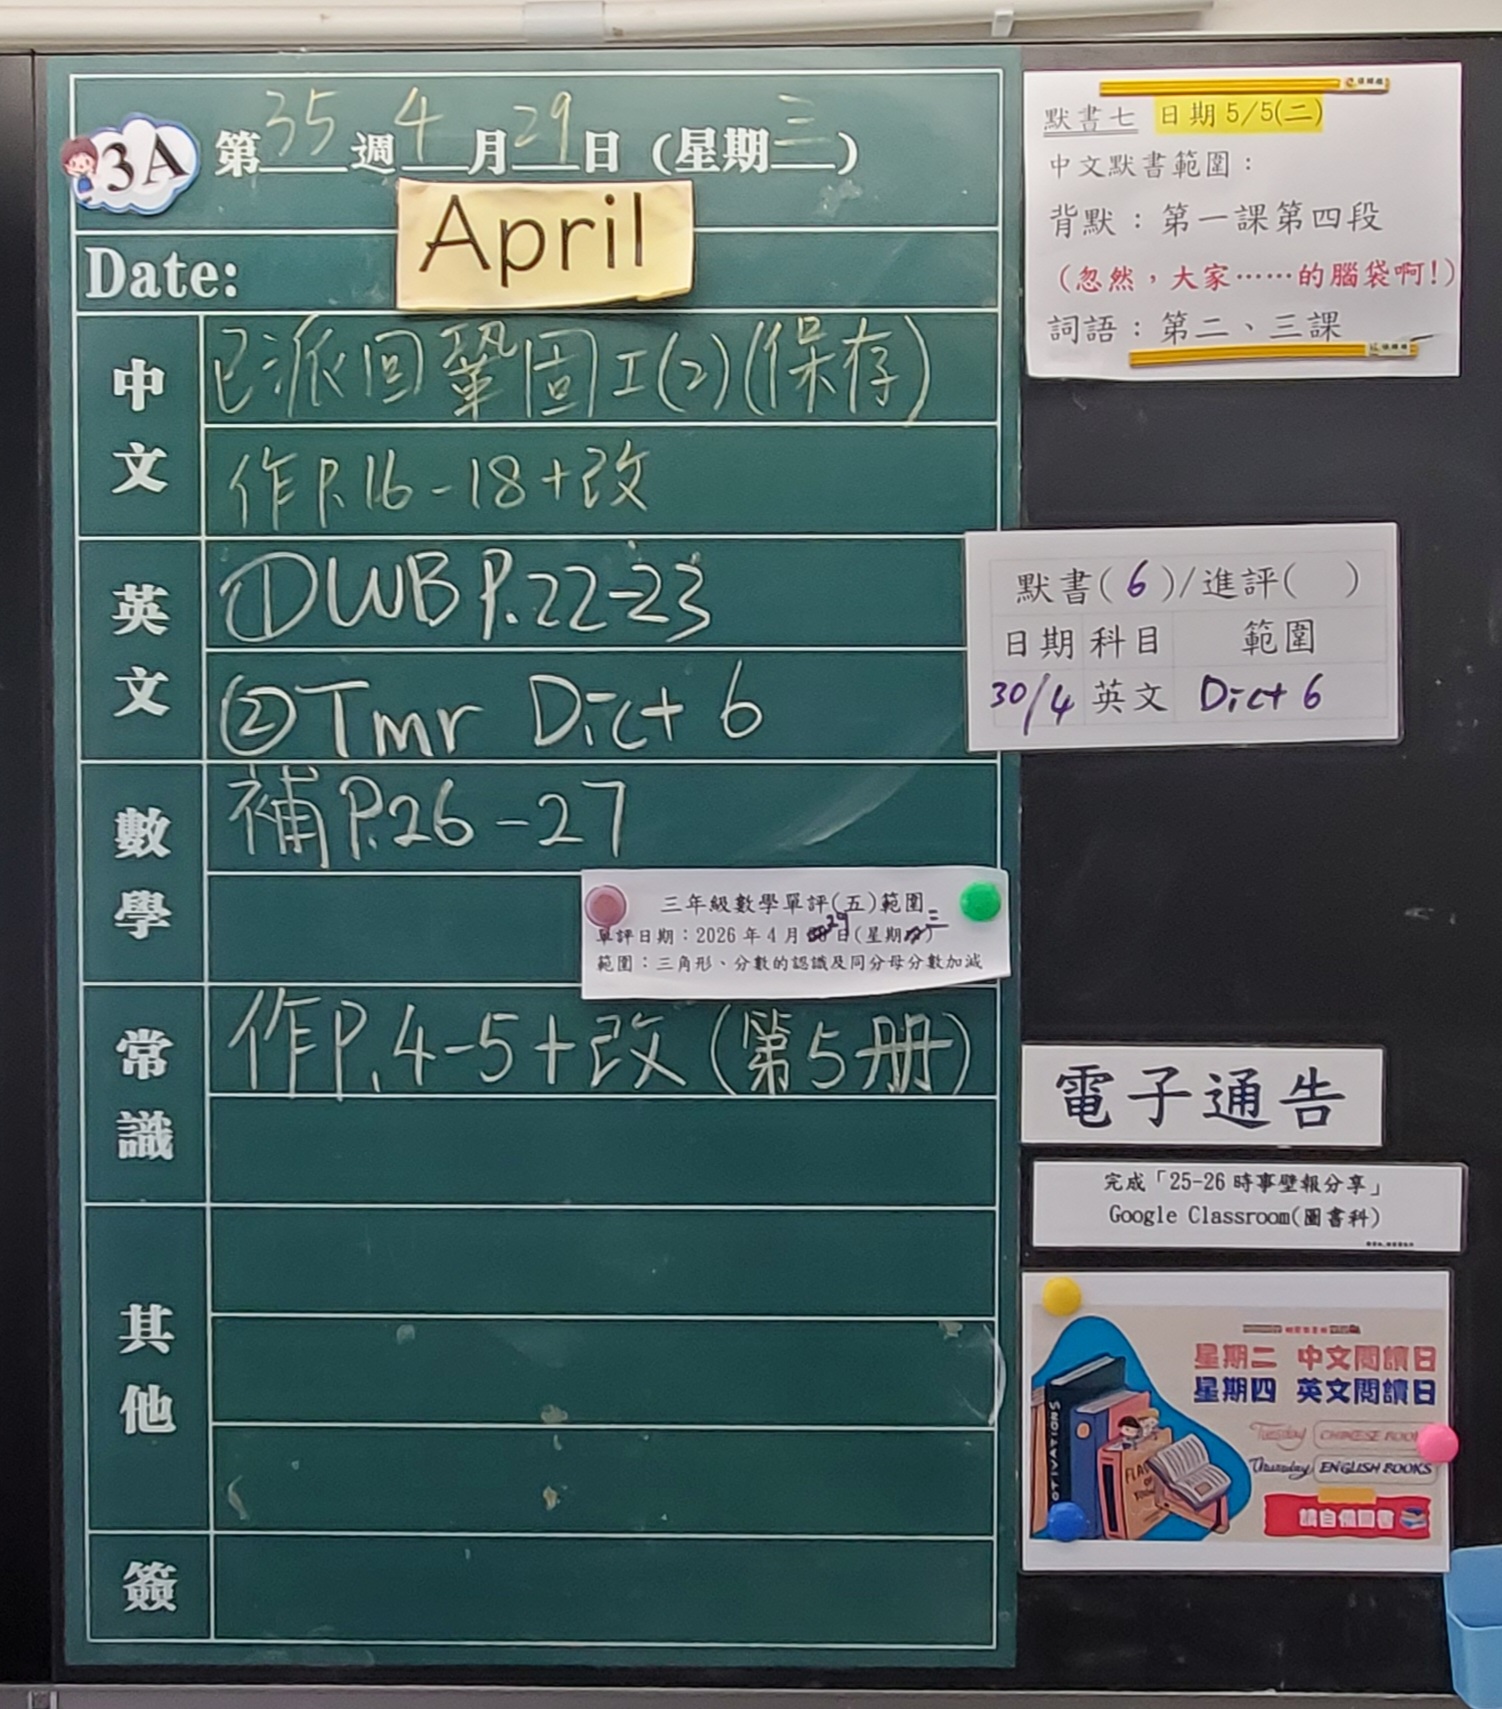 3A 第35週4月29日(星期三)
April
Date:
中文
已派回鞏固工(2)(保存)
作P.16-18+改
英文
①DWB P.22-23
②Tmr Dict 6
數學
補P.26-27
三年級數學單評(五)範圍
單評日期:2026年4月29日(星期三)
範圍:三角形、分數的認識及同分母分數加減
常識
作P.4-5+改(第5冊)
其他
簽
默書七 日期5/5(二)
中文默書範圍:
背默:第一課第四段
(忽然,大家……的腦袋啊!)
詞語:第二、三課
默書(6)/進評( )
日期 科目 範圍
30/4 英文 Dict 6
電子通告
完成「25-26時事壁報分享」
Google Classroom(圖書科)
星期二 中文閱讀日
星期四 英文閱讀日
Tuesday CHINESE BOOK
Thursday ENGLISH BOOKS
請自備圖書